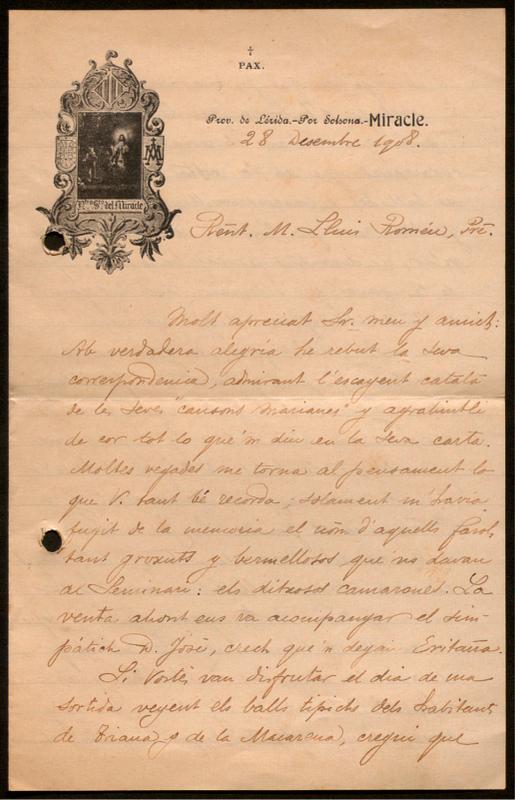 †
PAX.
Prov. de Lérida.-Por Solsona.-Miracle.
28 Desembre 1908.
Ntra. Sra. del Miracle
Rént. M. Lluis Roméu, Pre.
Molt apreciat Sr. meu y amich:
Ab verdadera alegría he rebut la seva
correspondencia, admirant l'escayent catalá
de les seves "cansons marianes" y agrahintli
de cor tot lo qué'm diu en la seva carta.
Moltes vegades me torna al pensament lo
que V. tant bé recorda; solament m'havia
fugit de la memoria el nóm d'aquells farols
tant groxuts y bermellosos que'ns davan
al Seminari: els ditxosos camarones. La
venta ahont ens va acompanyar el sim-
pátich D. José, crech qué'n deyan Eritaña.
Si Vostés van disfrutar el dia de ma
sortida veyent els balls tipichs dels habitants
de Triana y de la Macarena, cregui que